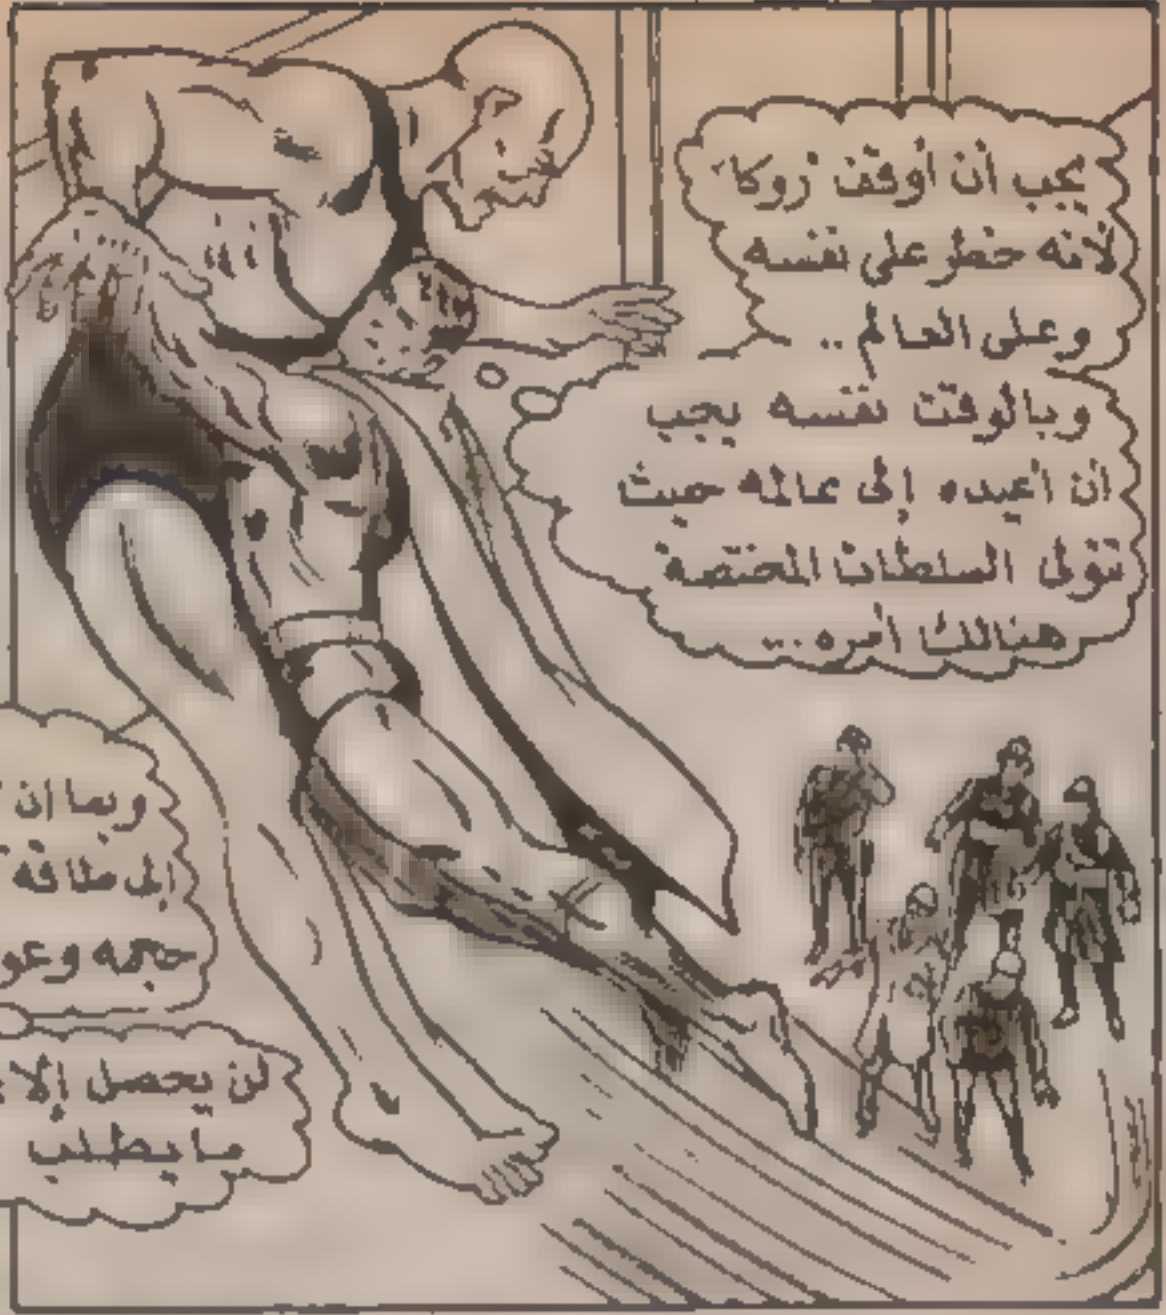 يجب أن أوقف زوكا
لأنه خطر على نفسه
وعلى العالم ..
وبالوقت نفسه يجب
ان أعيده إلى عالمه حيث
تتولى السلطات المختصة
هنالك أمره ...
وبما إن
إلى طاقة
حجمه وعو
لن يحصل إلا
ما يطلب